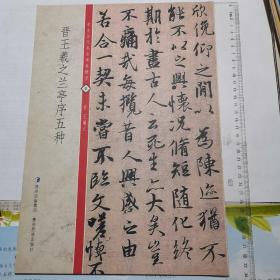 欣俛仰之間以為陳迹猶不
能不以之興懷況脩短隨化終
期於盡古人云死生亦大矣豈
不痛哉每攬昔人興感之由
若合一契未嘗不臨文嗟悼不
晋王羲之兰亭序五种